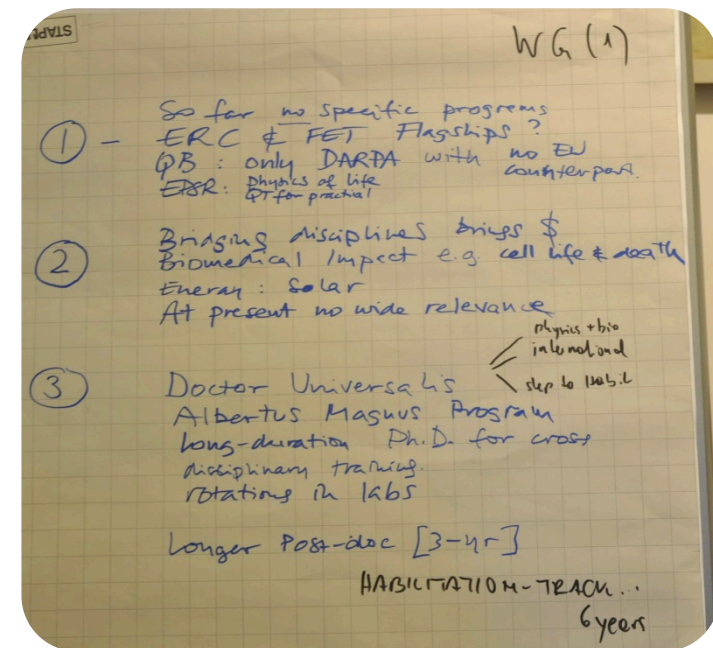 STAPL
WG (1)
So far no specific programs
① - ERC & FET Flagships?
QB: only DARPA with no EU
counterpart.
EPSR: Physics of life
QT for practial
② Bridging disciplines brings $
Biomedical Impact e.g. cell life & death
Energy: Solar
At present no wide relevance
physics + bio
international
step to Habil
③ Doctor Universalis
Albertus Magnus Program
Long-duration Ph.D. for cross
disciplinary training.
rotations in labs
Longer Post-doc [3-yr]
HABILITATION-TRACK...
6 years